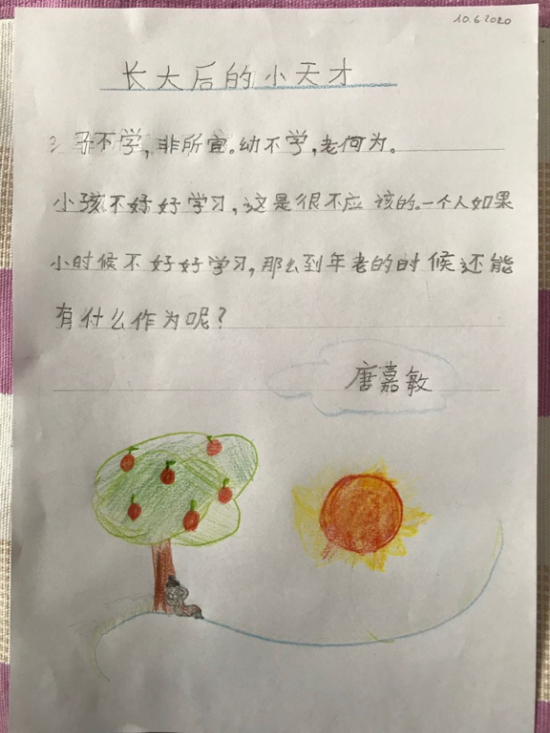 10.6.2020
长大后的小天才
子不学，非所宜。幼不学，老何为。
小孩不好好学习，这是很不应该的。一个人如果
小时候不好好学习，那么到年老的时候还能
有什么作为呢？
唐嘉敏